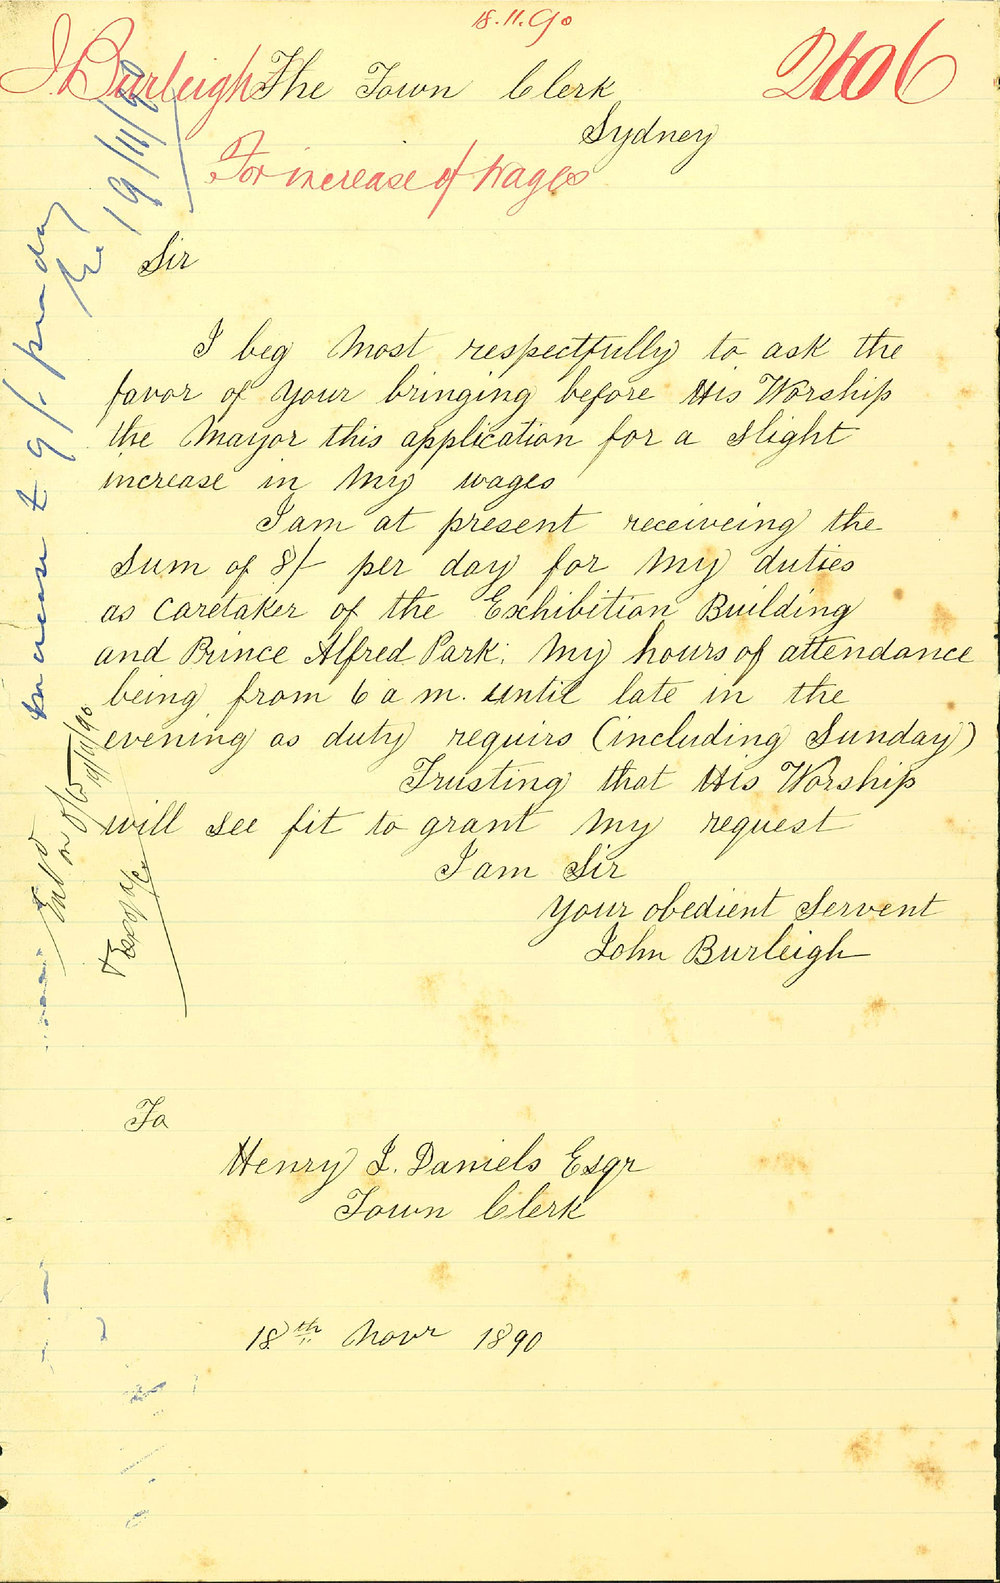 18.11.90
J Burleigh
2606
The Town Clerk
Sydney
For increase of Wages
Sir
I beg Most respectfully to ask the
favor of your bringing before His Worship
the Mayor this application for a slight
increase in My wages
I am at present receiveing the
Sum of 8/- per day for My duties
as Caretaker of the Exhibition Building
and Prince Alfred Park; My hours of attendance
being from 6 a m. until late in the
evening as duty requirs (including Sunday)
Trusting that His Worship
will see fit to grant My request
I am Sir
Your obedient Servent
John Burleigh
To
Henry J. Daniels Esqr
Town Clerk
18th Novr 1890
Increase to 9/- per day
19/11/90
19/11/90